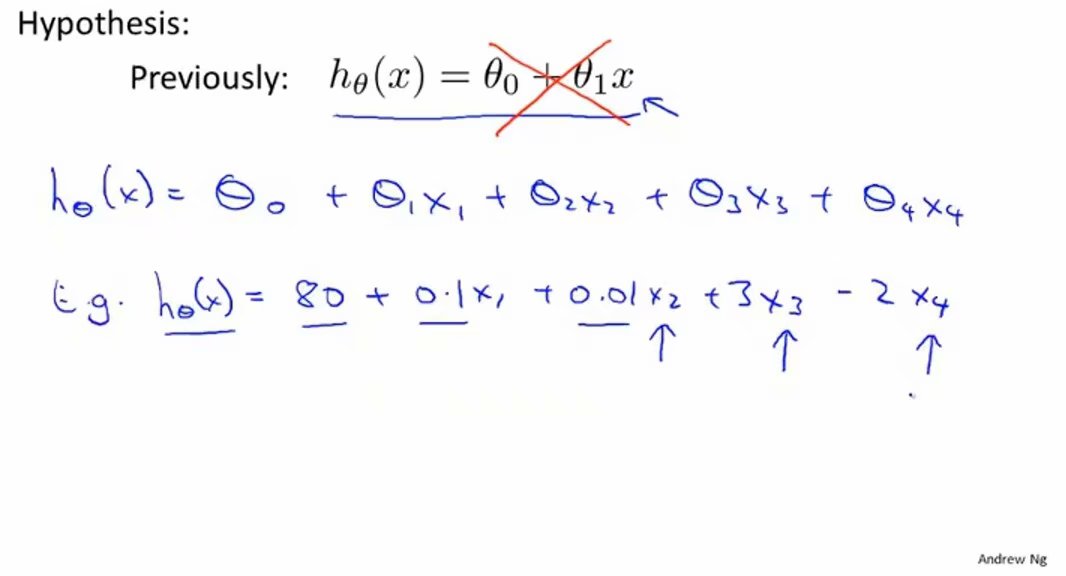 Hypothesis:
Previously: hθ(x) = θ₀ + θ₁x
hθ(x) = θ₀ + θ₁x₁ + θ₂x₂ + θ₃x₃ + θ₄x₄
E.g. hθ(x) = 80 + 0.1x₁ + 0.01x₂ + 3x₃ - 2x₄
Andrew Ng